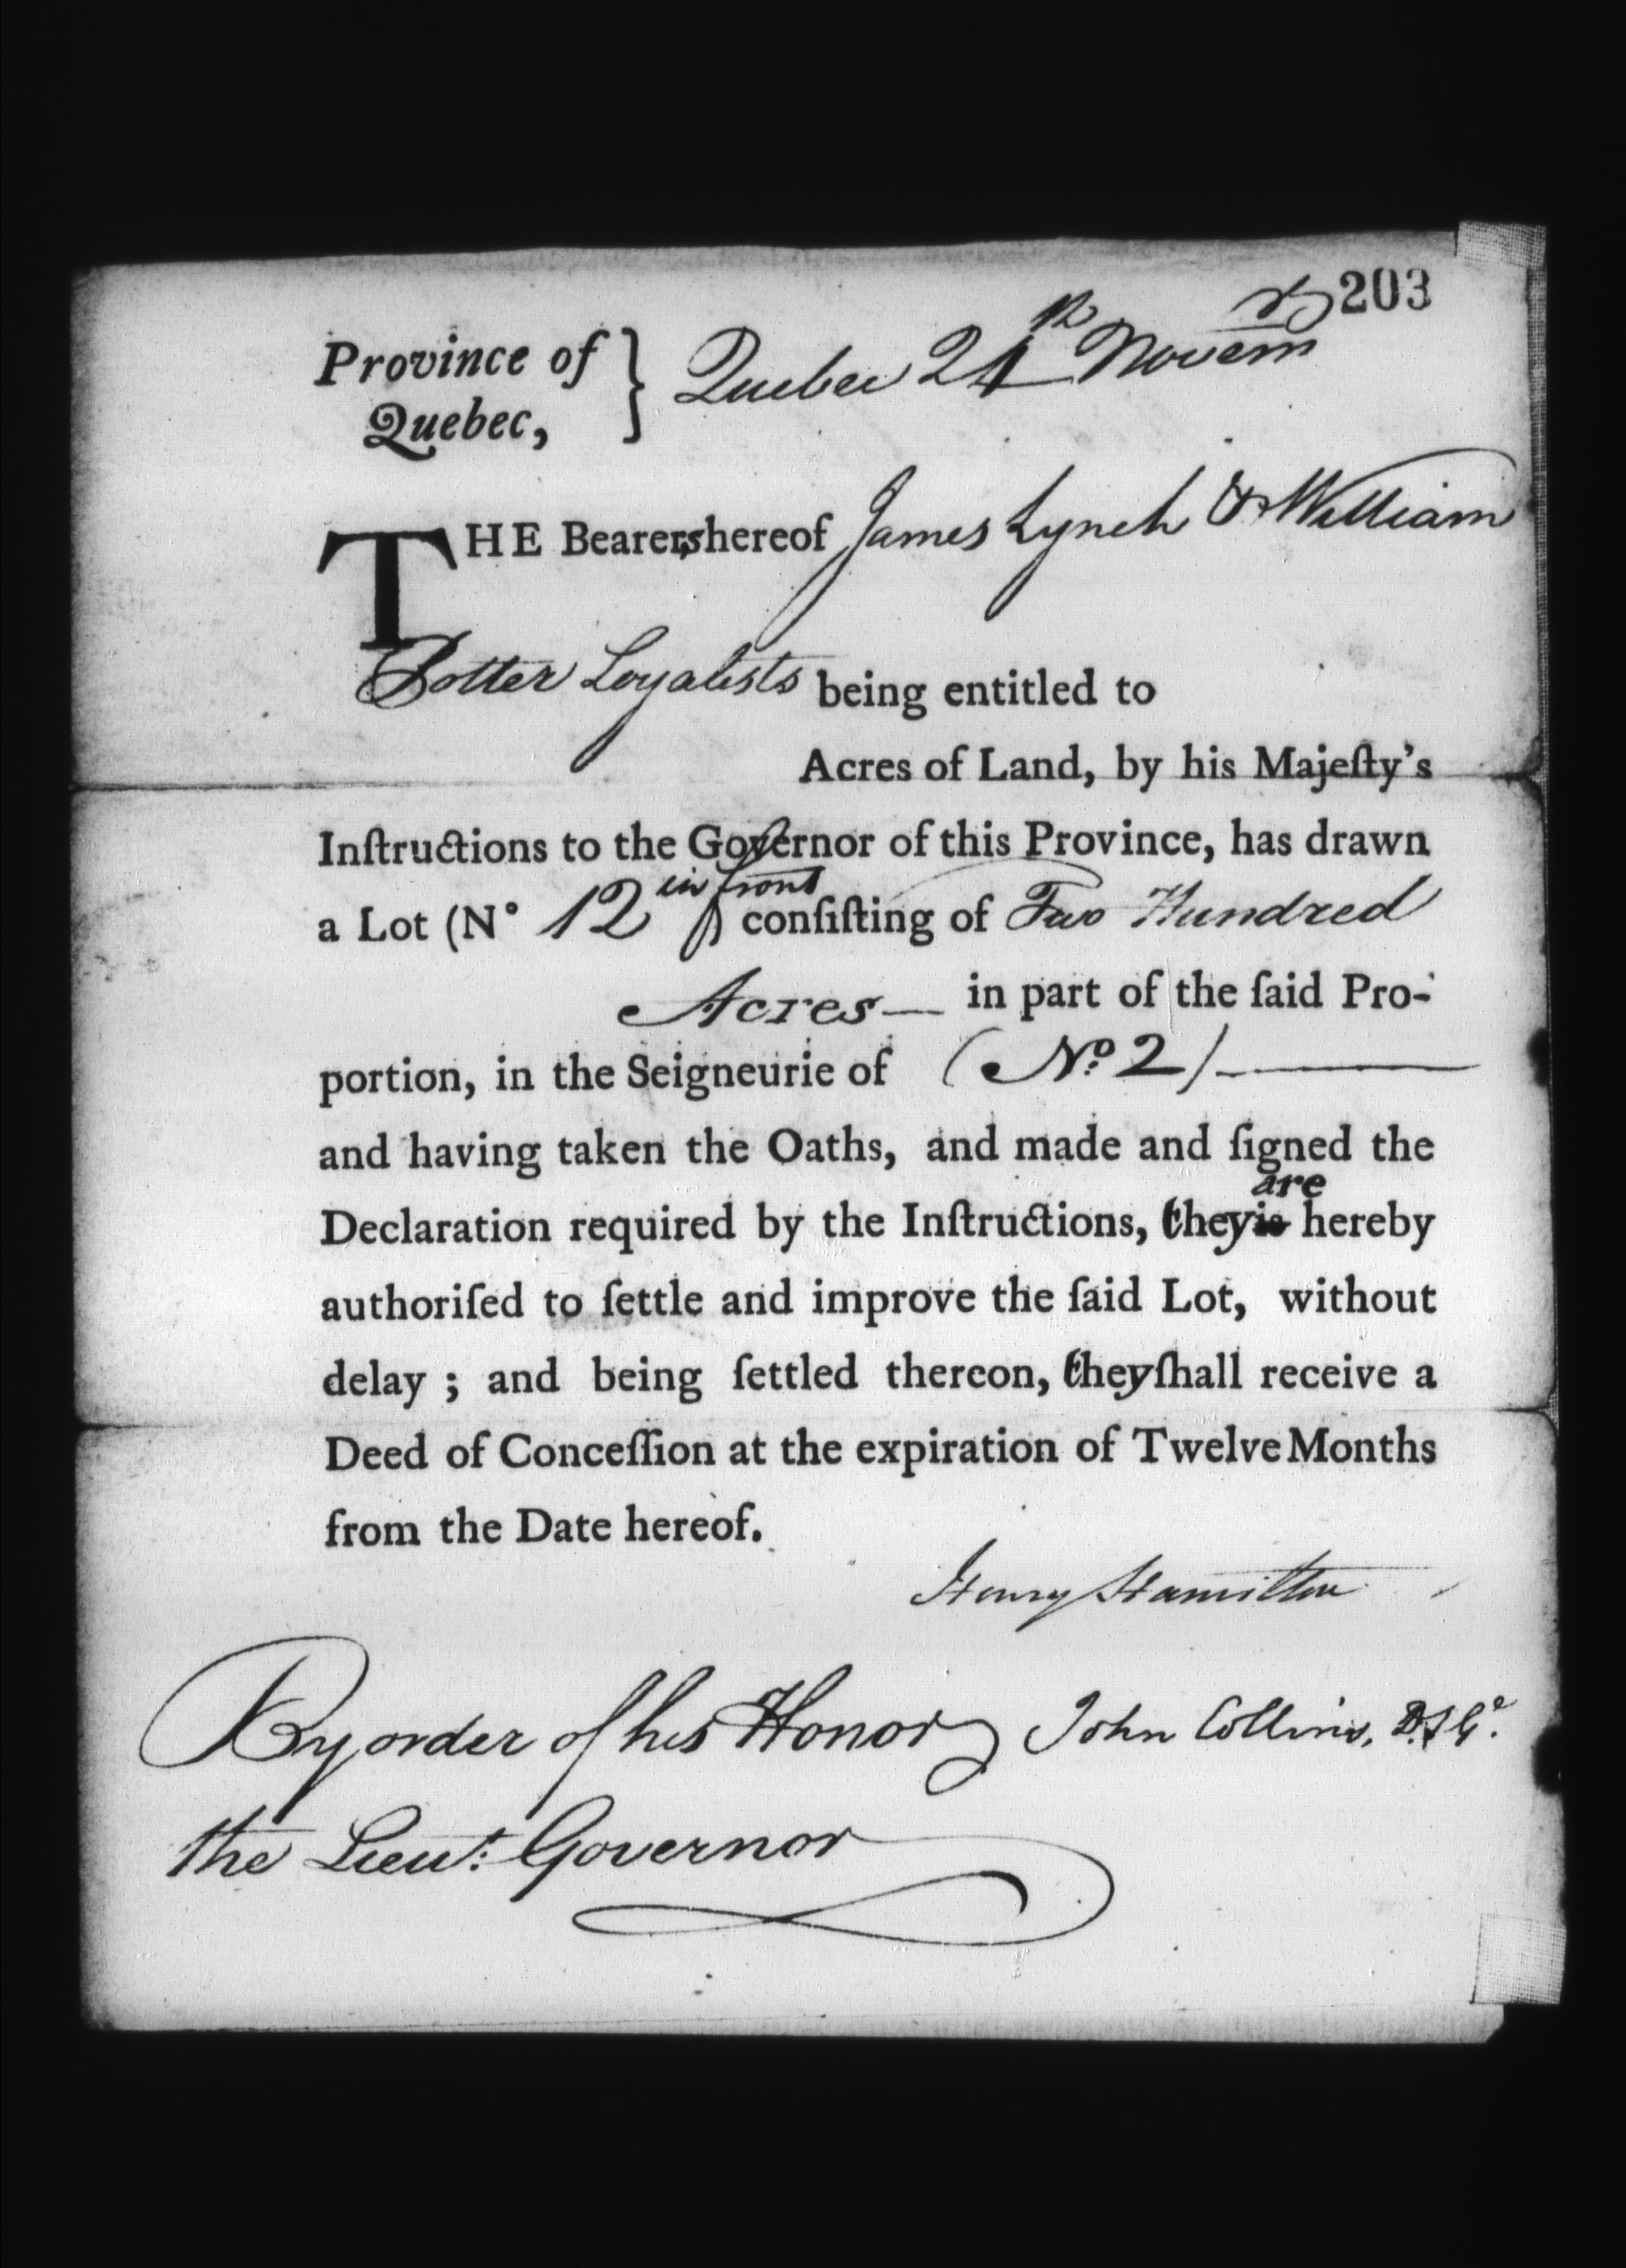 203
Province of Quebec, } Quebec 24th Novem^r
THE Bearers hereof James Lynch & William
Potter Loyalists being entitled to
Acres of Land, by his Majeſty's
Inſtructions to the Governor of this Province, has drawn
a Lot (N° 12 in front) conſiſting of Two Hundred
Acres — in part of the ſaid Pro-
portion, in the Seigneurie of (N.o 2) —
and having taken the Oaths, and made and ſigned the
Declaration required by the Inſtructions, they is are hereby
authoriſed to ſettle and improve the ſaid Lot, without
delay ; and being ſettled thereon, they ſhall receive a
Deed of Conceſſion at the expiration of Twelve Months
from the Date hereof.
Henry Hamilton
By order of his Honor John Collins, D.S.G.
the Lieut: Governor